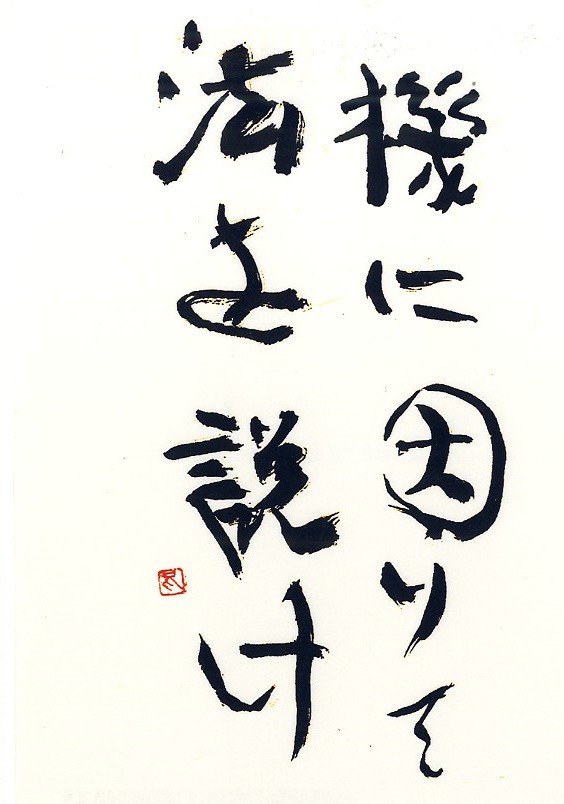 機に因りて
法を説け